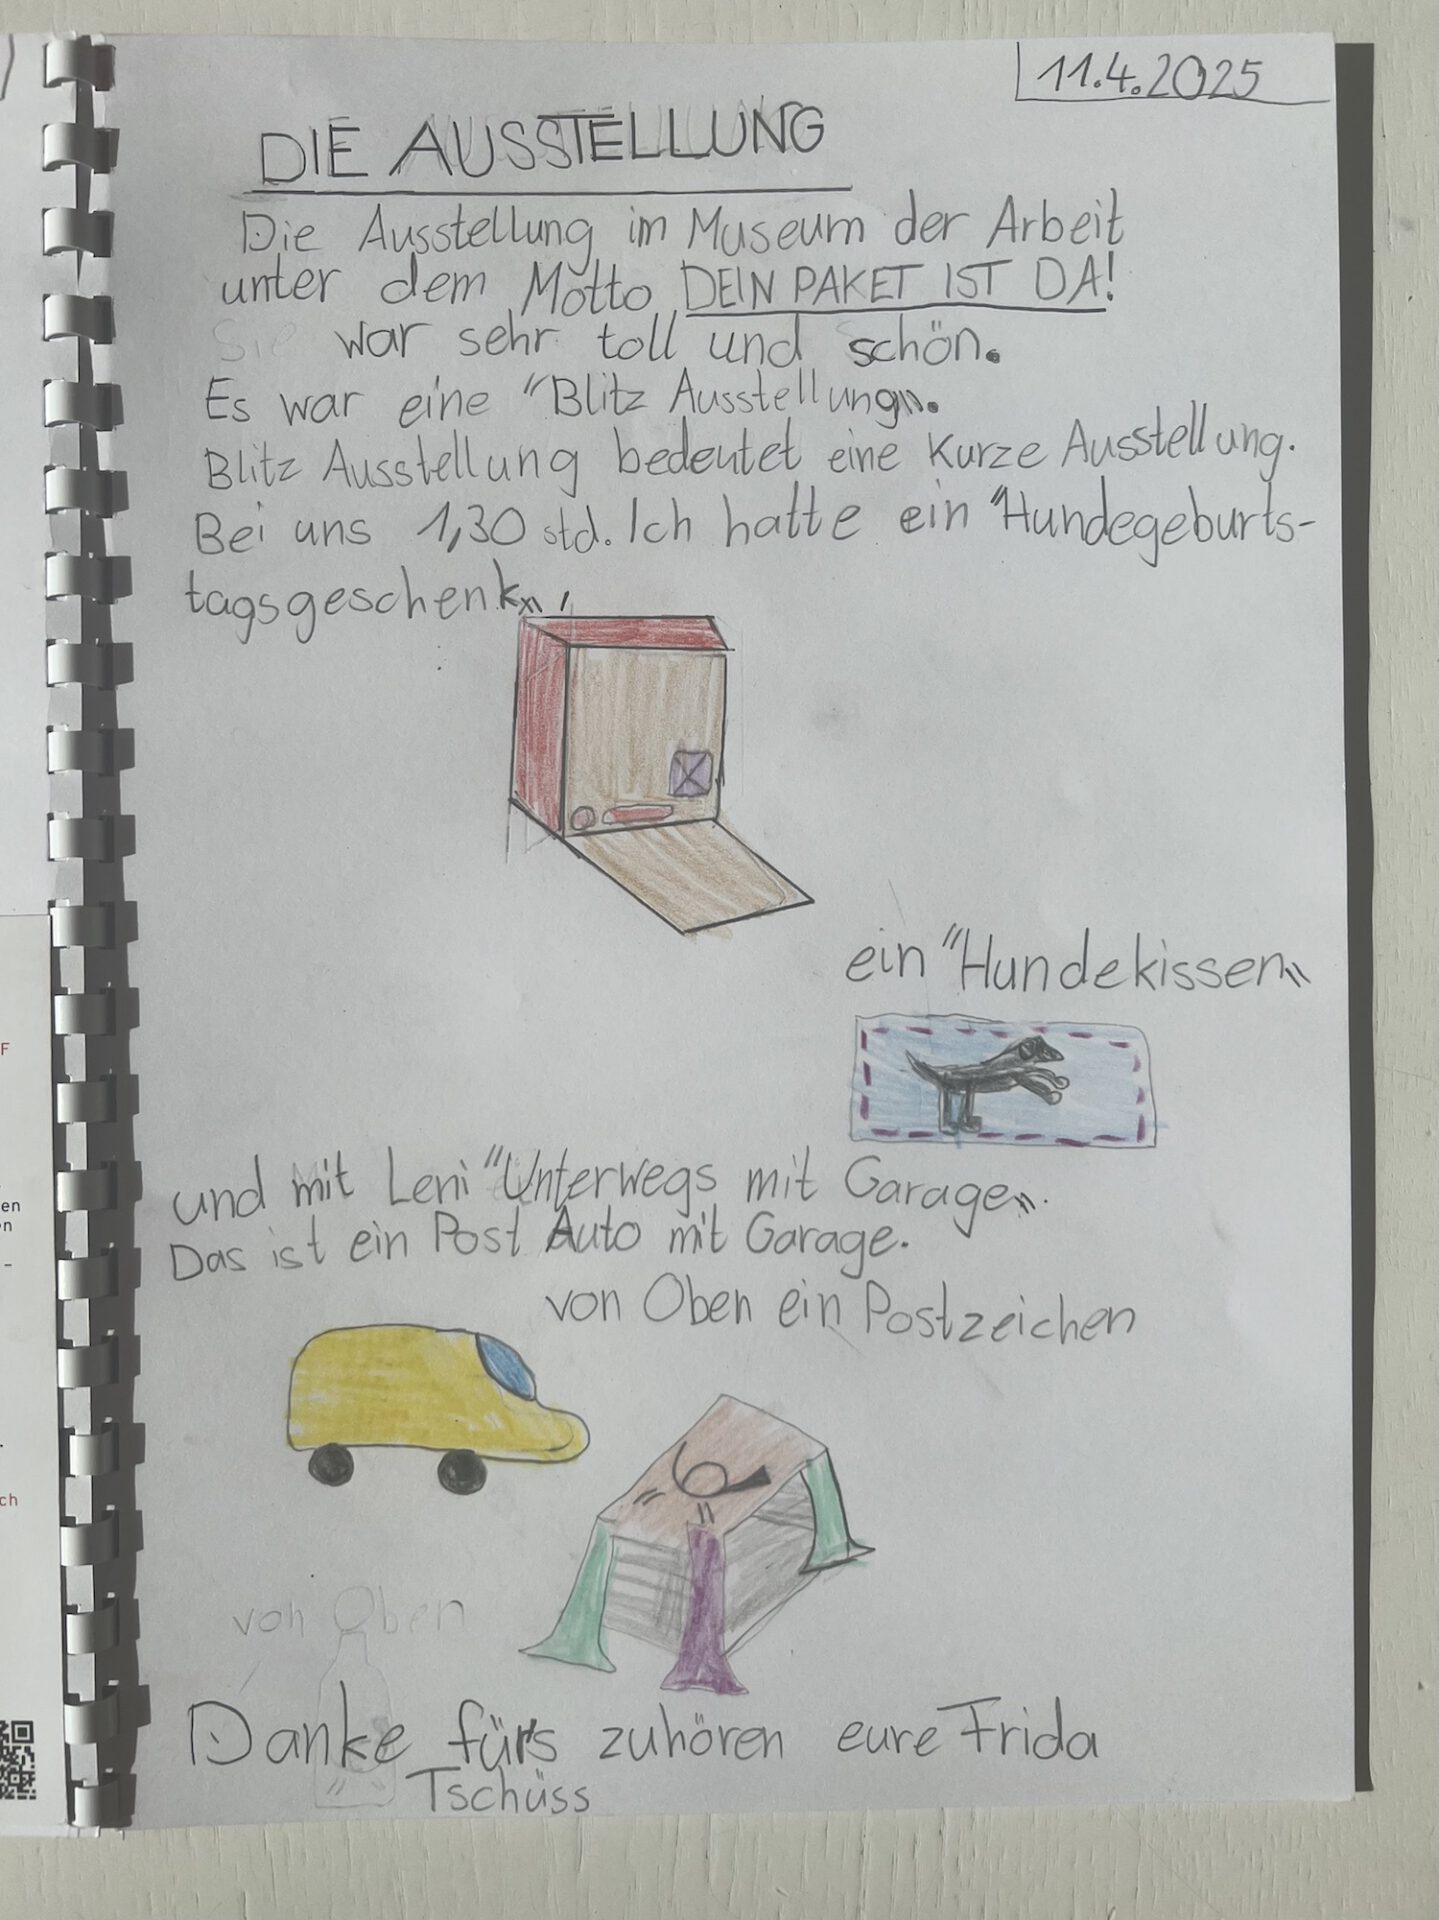 11.4.2025
DIE AUSSTELLUNG
Die Ausstellung im Museum der Arbeit
unter dem Motto DEIN PAKET IST DA!
Sie war sehr toll und schön.
Es war eine "Blitz Ausstellung".
Blitz Ausstellung bedeutet eine Kurze Ausstellung.
Bei uns 1,30 std. Ich hatte ein "Hundegeburts-
tagsgeschenk",
ein "Hundekissen"
und mit Leni "Unterwegs mit Garage".
Das ist ein Post Auto mit Garage.
von Oben ein Postzeichen
von Oben
Danke für's zuhören eure Frida
Tschüss
F
en
en
-
.
ch